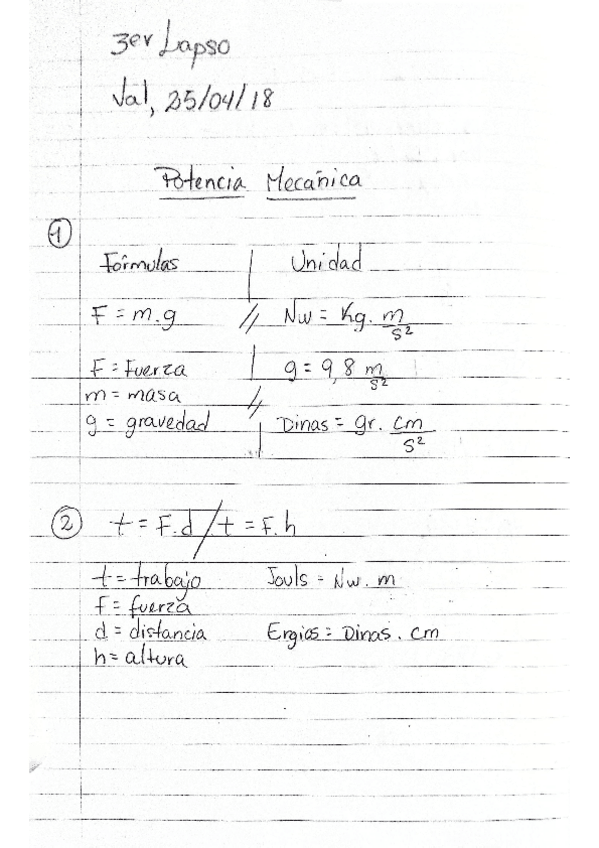 3er Lapso
Val, 25/04/18
Potencia Mecánica
①
Fórmulas | Unidad
F = m.g // Nw = Kg. m/s²
F = Fuerza | g = 9,8 m/s²
m = masa //
g = gravedad | Dinas = gr. cm/s²
② t = F.d / t = F.h
t = trabajo Jouls = Nw. m
f = fuerza
d = distancia Ergios = Dinas. cm
h = altura